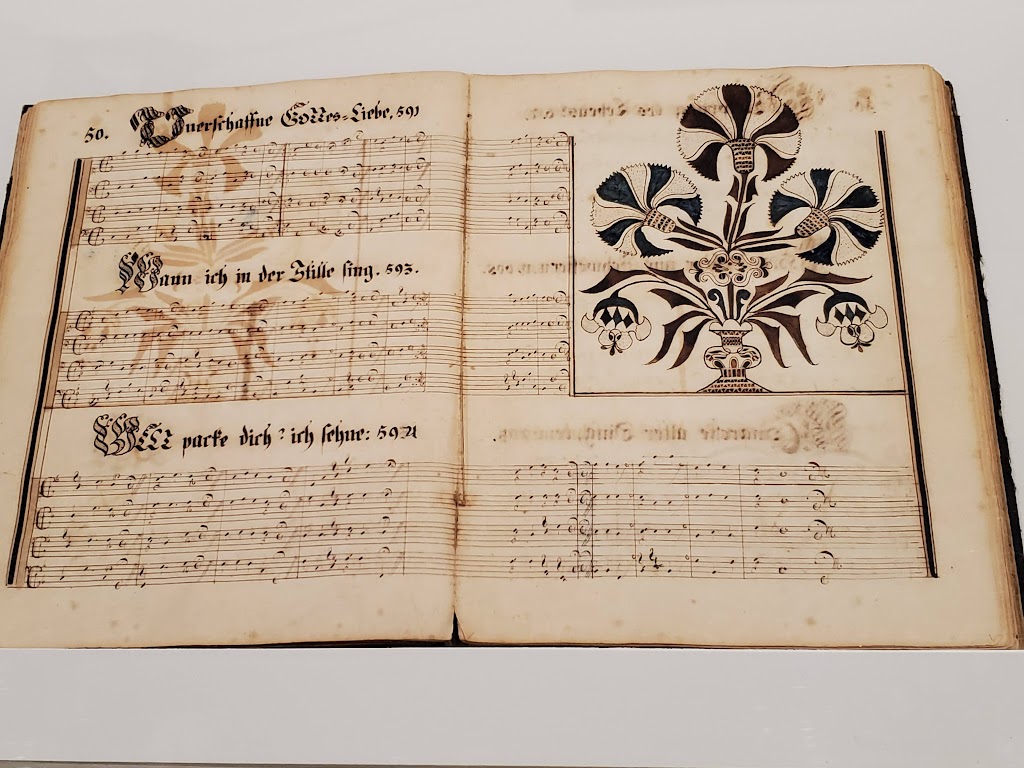 50. Unerschaffne GoTTes-Liebe, 591
Wann ich in der Stille sing. 593.
WELT packe dich? ich sehne: 594